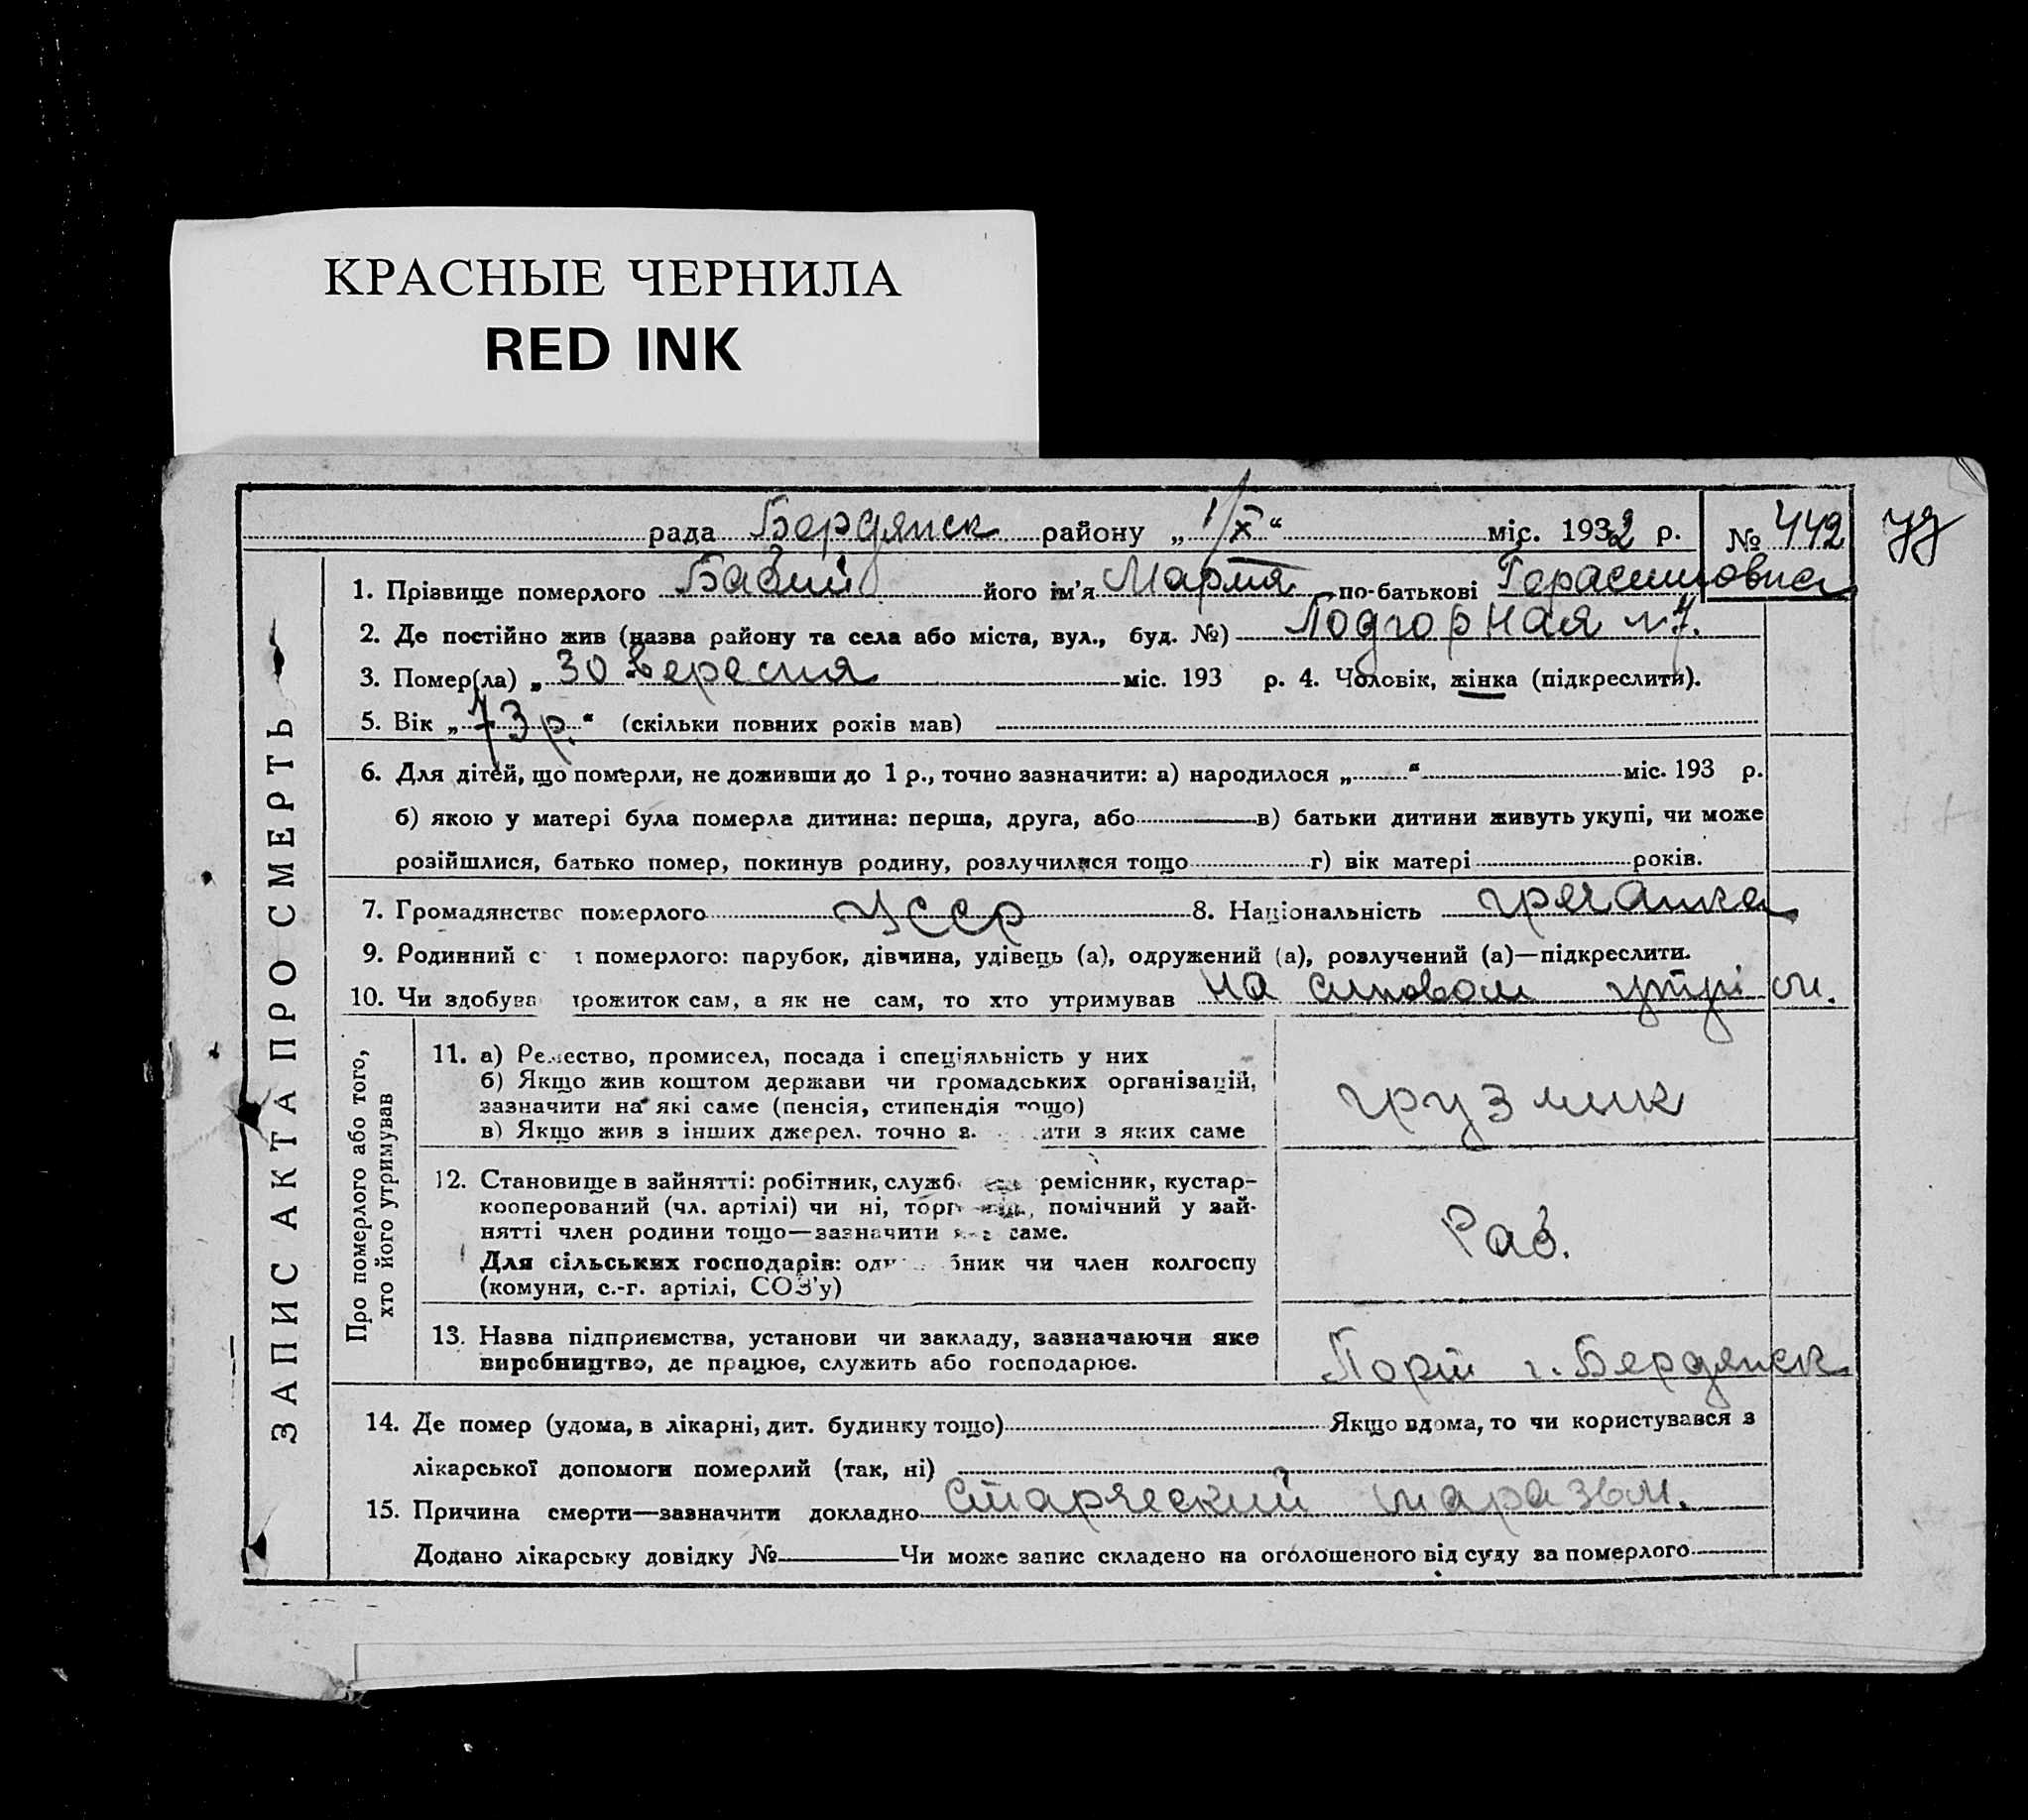 КРАСНЫЕ ЧЕРНИЛА
RED INK
рада Бердянск району „1/X“ міс. 1932 р. № 442
уд
1. Прізвище померлого Бабий його ім'я Мария по-батькові Герасимовна
2. Де постійно жив (назва району та села або міста, вул., буд. №) Подгорная №7.
3. Помер(ла) „30 вересня міс. 193 р. 4. Чоловік, жінка (підкреслити).
5. Вік „73 р.“ (скільки повних років мав)
6. Для дітей, що померли, не доживши до 1 р., точно зазначити: а) народилося „ “ міс. 193 р.
б) якою у матері була померла дитина: перша, друга, або в) батьки дитини живуть укупі, чи може
розійшлися, батько помер, покинув родину, розлучилися тощо г) вік матері років.
7. Громадянство померлого УССР 8. Національність гречанка
9. Родинний с померлого: парубок, дівчина, удівець (а), одружений (а), розлучений (а)—підкреслити.
10. Чи здобува прожиток сам, а як не сам, то хто утримував на синовом утрім.
ЗАПИС АКТА ПРО СМЕРТЬ
Про померлого або того,
хто його утримував
11. а) Ремество, промисел, посада і спеціяльність у них
б) Якщо жив коштом держави чи громадських організацій,
зазначити на які саме (пенсія, стипендія тощо)
в) Якщо жив з інших джерел, точно з ити з яких саме
грузчик
12. Становище в зайнятті: робітник, служб ремісник, кустар-
кооперований (чл. артілі) чи ні, торг помічний у зай-
нятті член родини тощо—зазначити саме.
Для сільських господарів: од бник чи член колгоспу
(комуни, с.-г. артілі, СОЗ'у)
Раб.
13. Назва підприємства, установи чи закладу, зазначаючи яке
виробництво, де працює, служить або господарює.
Порт г. Бердянск
14. Де помер (удома, в лікарні, дит. будинку тощо) Якщо вдома, то чи користувався з
лікарської допомоги померлий (так, ні)
15. Причина смерти—зазначити докладно Старческий маразм.
Додано лікарську довідку № Чи може запис складено на оголошеного від суду за померлого